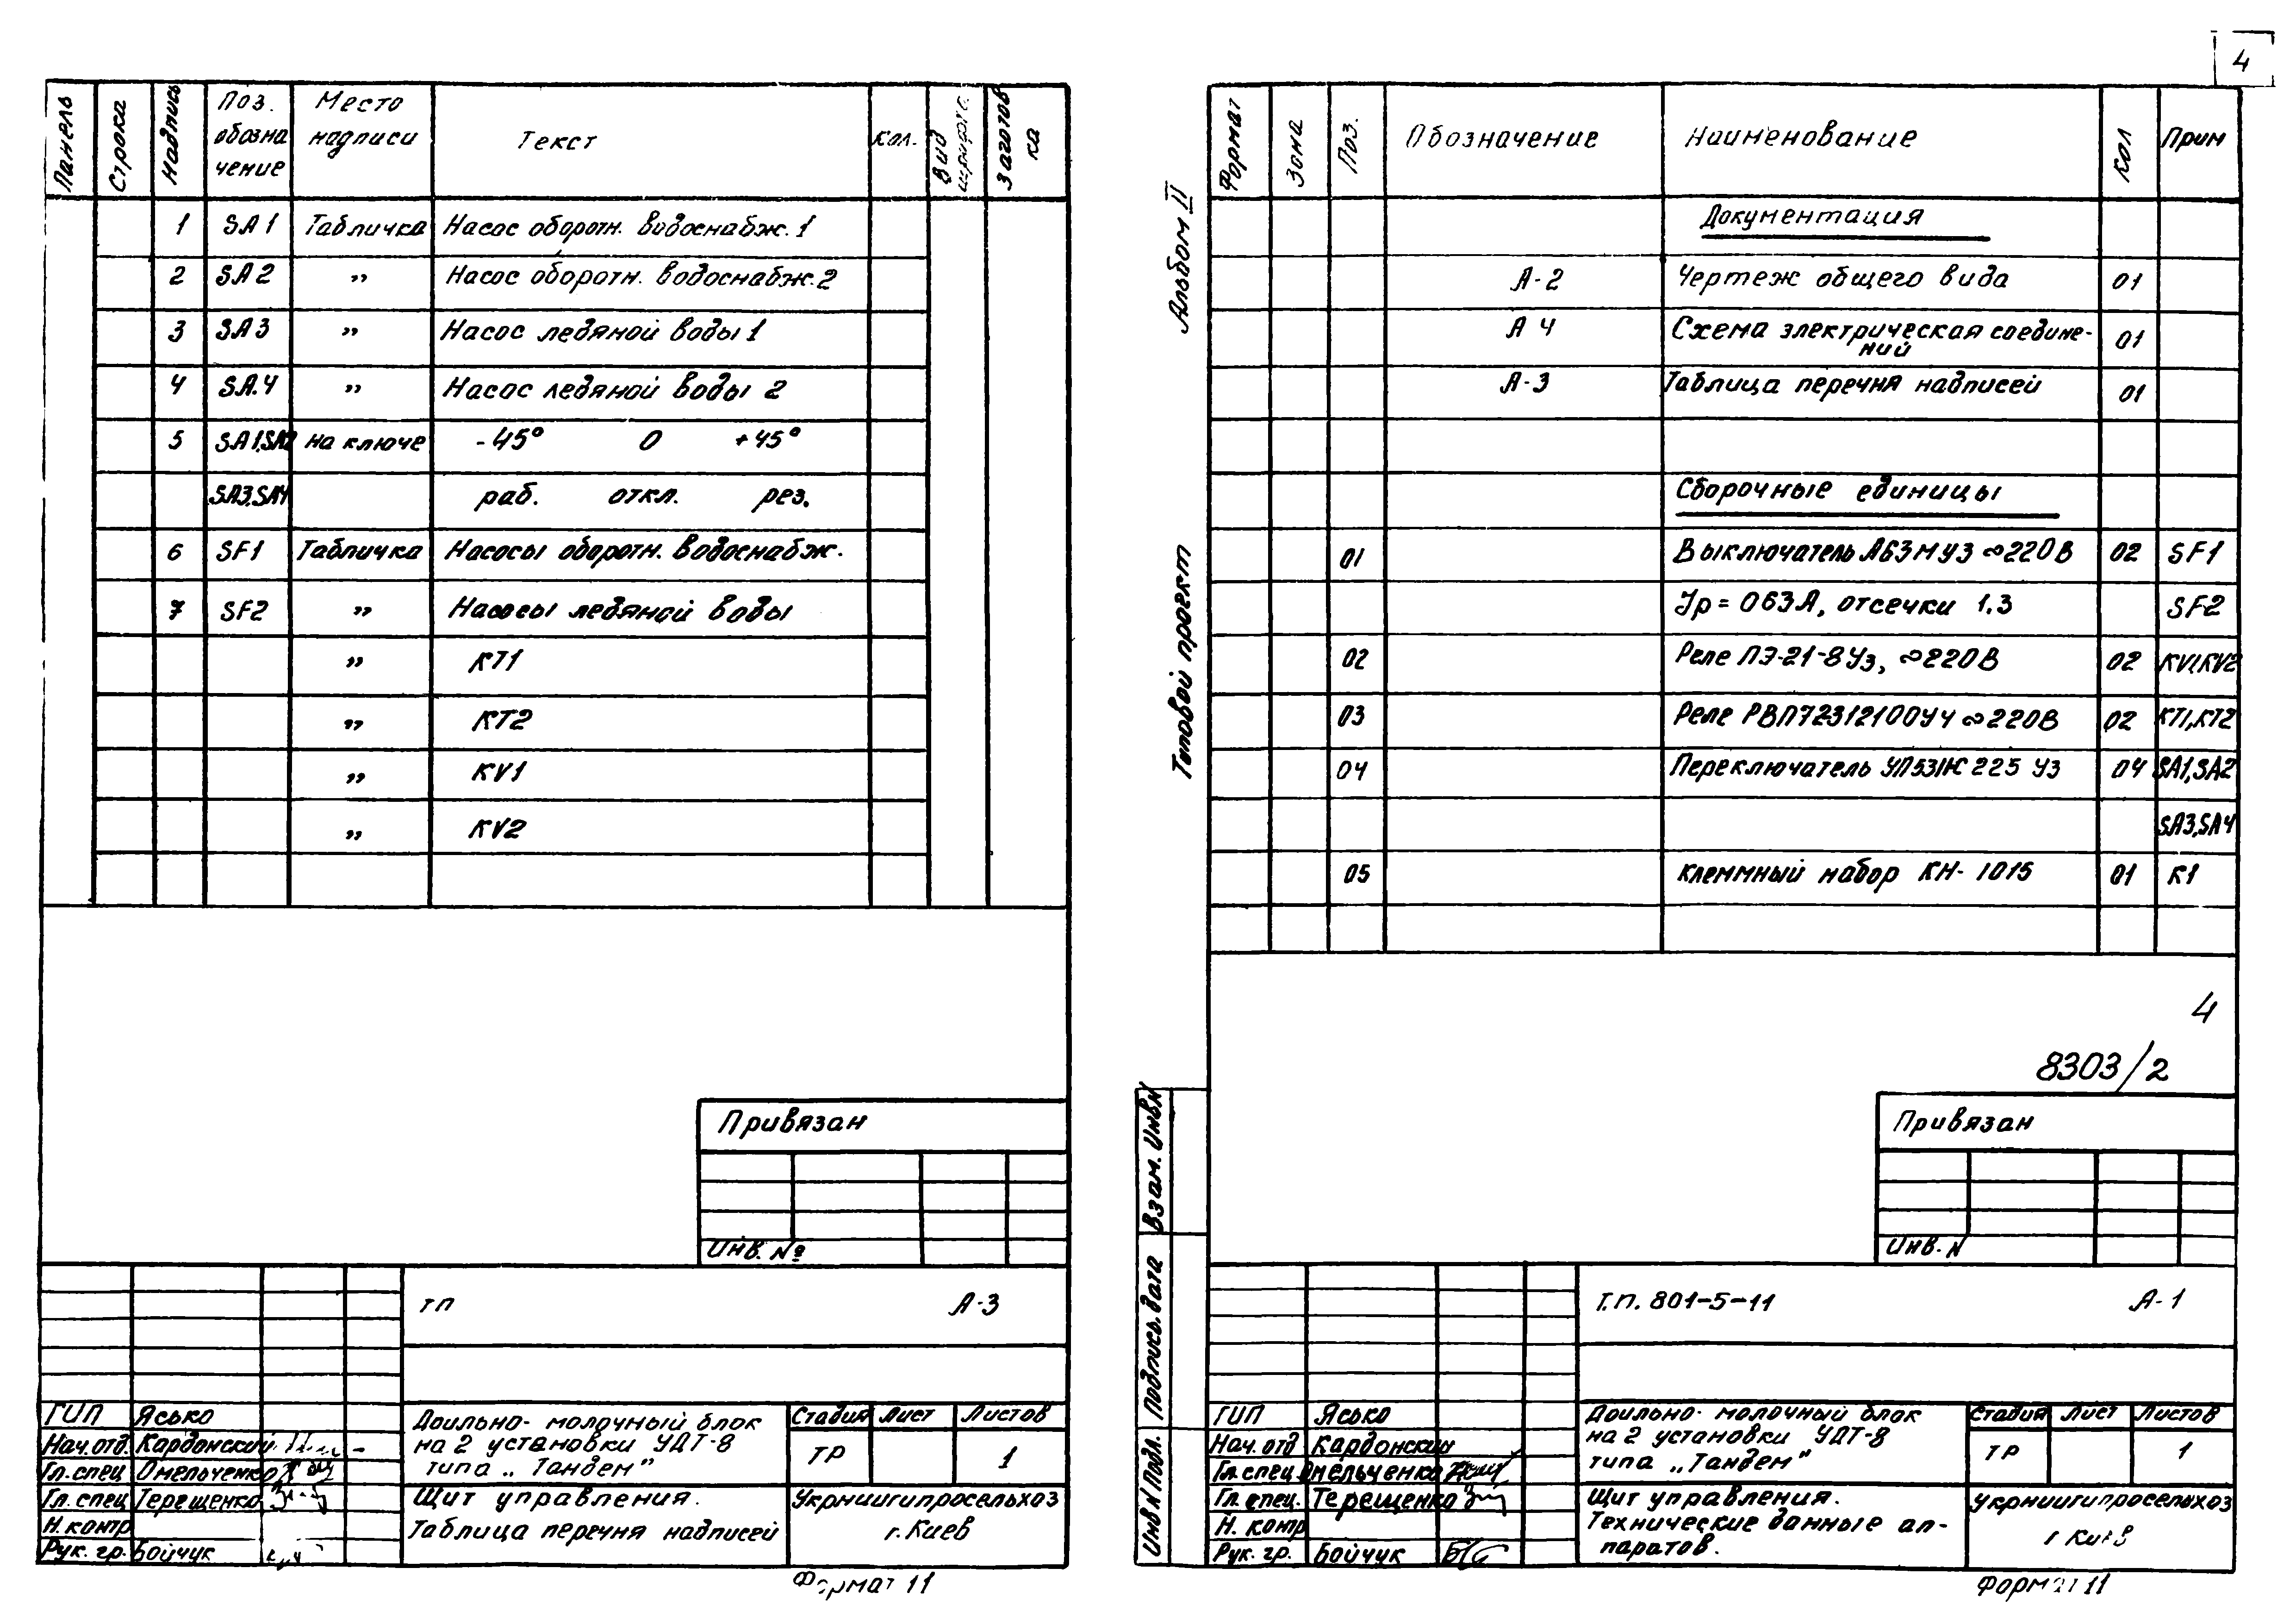 4
Панель Строка Надпись Поз. обозна чение Место надписи Текст Кол. Вид шрифта Заготов ка
1 SA1 Табличка Насос оборотн. водоснабж. 1
2 SA2 " Насос оборотн. водоснабж. 2
3 SA3 " Насос ледяной воды 1
4 SA.4 " Насос ледяной воды 2
5 SA1,SA2 на ключе -45° 0 +45°
SA3,SA4 раб. откл. рез.
6 SF1 Табличка Насосы оборотн. водоснабж.
7 SF2 " Насосы ледяной воды
" КТ1
" КТ2
" KV1
" KV2
Привязан
Инв. №
ТП А-3
ГИП Ясько
Нач.отд. Кардонский
Гл.спец Омельченко
Гл. спец Терещенко
Н. контр
Рук. гр. Бойчук
Доильно- молочный блок
на 2 установки УДТ-8
типа „Тандем"
Стадия Лист Листов
ТР 1
Щит управления.
Таблица перечня надписей
Укрниигипросельхоз
г. Киев
Формат 11
Альбом II
Типовой проект
Формат Зона Поз. Обозначение Наименование Кол Прим
Документация
А-2 Чертеж общего вида 01
А 4 Схема электрическая соедине-
ний 01
А-3 Таблица перечня надписей 01
Сборочные единицы
01 Выключатель А63МУ3 ∾220В 02 SF1
Jр = 063А, отсечки 1.3 SF2
02 Реле ПЭ-21-8У3, ∾220В 02 KV1,KV2
03 Реле РВП72312100У4 ∾220В 02 КТ1,КТ2
04 Переключатель УП531Ж 225 У3 04 SA1,SA2
SA3,SA4
05 Клеммный набор КН-1015 01 К1
4
8303/2
Привязан
Инв. N
Взам. Инв N
Подпись. дата
Инв N Подл.
Т.П. 801-5-11 А-1
ГИП Ясько
Нач. отд Кардонский
Гл. спец Омельченко
Гл. спец. Терещенко
Н. контр
Рук. гр. Бойчук
Доильно- молочный блок
на 2 установки УДТ-8
типа „Тандем"
Стадия Лист Листов
ТР 1
Щит управления.
Технические данные ап-
паратов.
Укрниигипросельхоз
г Киев
Формат 11